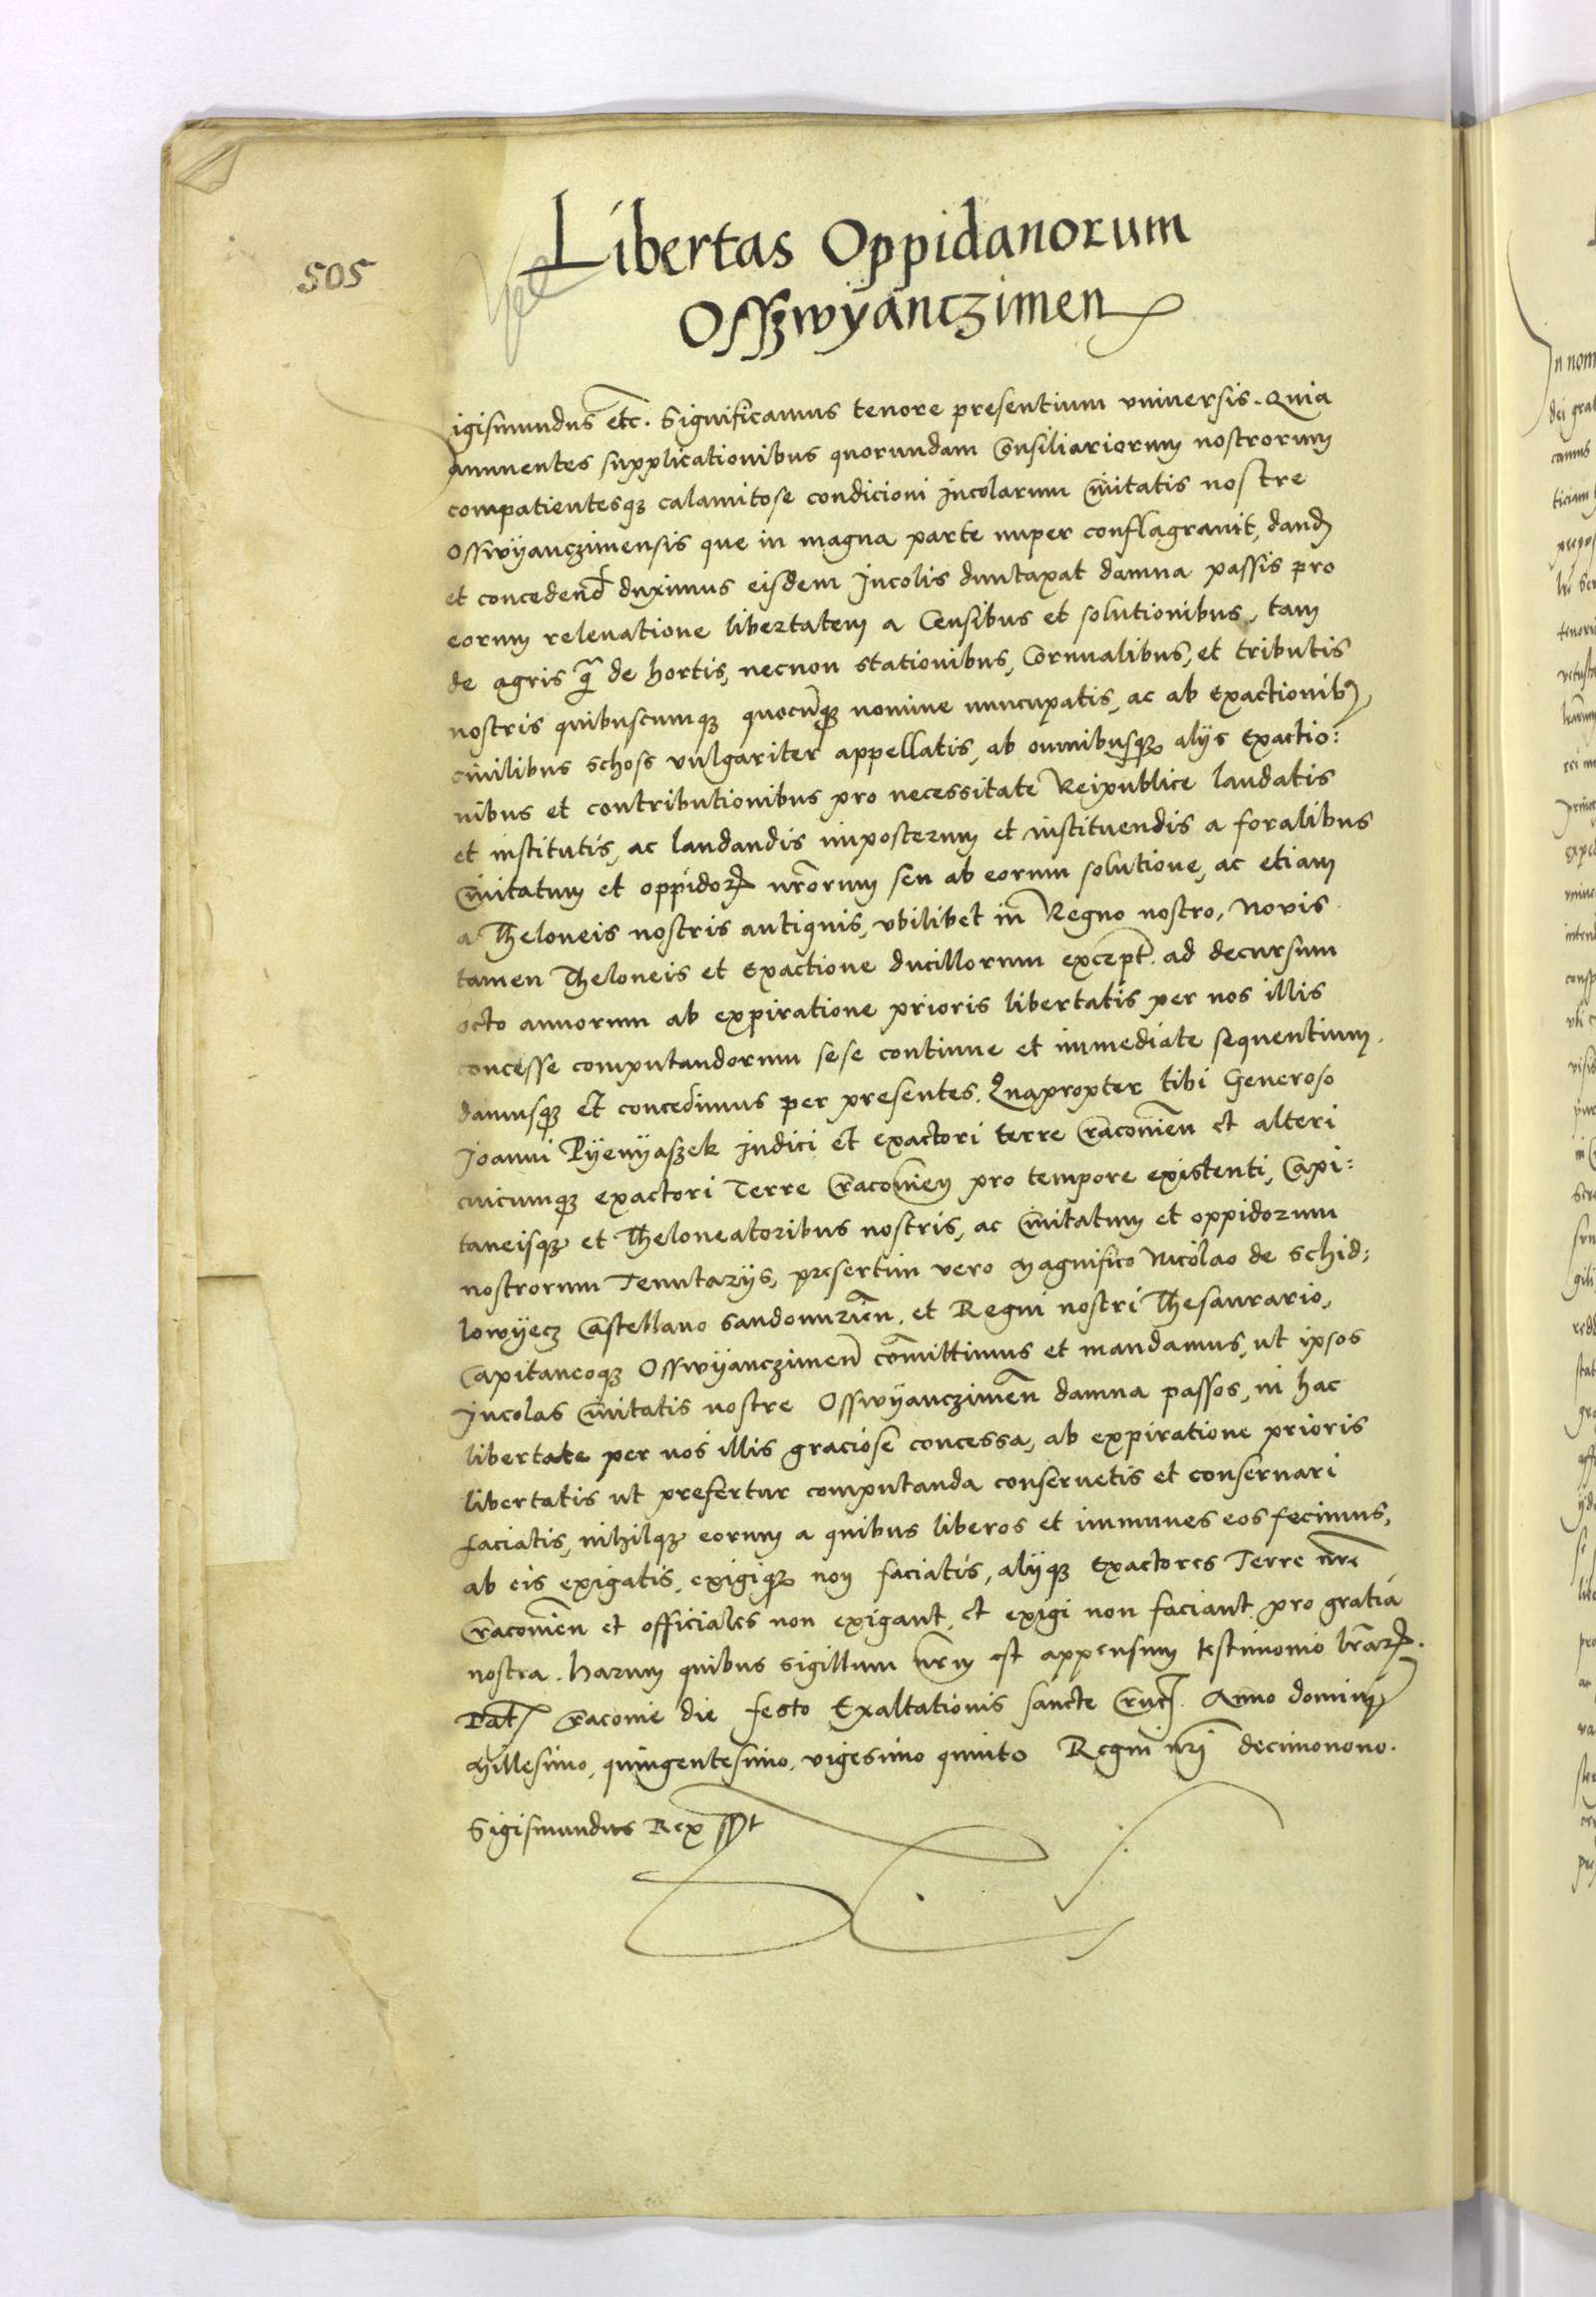 505
Libertas Oppidanorum
Osszwyanczimen
igismundus etc. Significamus tenore presentium vniuersis. Quia
annuentes supplicationibus quorundam Consiliariorum nostrorum
compatientesq; calamitose condicioni Incolarum Ciuitatis nostre
Osswyanczimensis que in magna parte nuper conflagrauit, dand
et concedend duximus eisdem Incolis duntaxat damna passis pro
eorum releuatione libertatem a Censibus et solutionibus, tam
de agris q̃ de hortis, necnon stationibus, Cornualibus, et tributis
nostris quibuscumq; quocũq; nomine nuncupatis, ac ab Exactionib9
ciuilibus schoss vulgariter appellatis, ab omnibusq; alÿs Exactio:
nibus et contributionibus pro necessitate Reipublice laudatis
et institutis, ac laudandis imposterum et instituendis a foralibus
Ciuitatum et oppidoꝝ nr̃orum seu ab eorum solutione, ac etiam
a Theloneis nostris antiquis, vbilibet in Regno nostro, Nouis
tamen Theloneis et Exactione ducillorum except. ad decursum
octo annorum ab expiratione prioris libertatis per nos illis
concesse computandorum sese continue et immediate sequentium.
damusq; et concedimus per presentes. Quapropter tibi Generoso
Joanni Pÿenÿaszek Judici et exactori terre Cracouien̄ et alteri
cuicumq; exactori Terre Cracouien̄ pro tempore existenti, Capi:
taneisq; et Theloneatoribus nostris, ac Ciuitatum et oppidorum
nostrorum Tenutarÿs, presertim vero Magnifico Nicolao de Schid:
lowÿecz Castellano Sandomirien̄. et Regni nostri Thesaurario,
Capitaneoq; Osswÿanczimen̄ com̃ittimus et mandamus, ut ipsos
Incolas Ciuitatis nostre Osswÿanczimen̄ damna passos, in hac
libertate per nos illis graciose concessa, ab expiratione prioris
libertatis ut prefertur computanda conseruetis et conseruari
faciatis, nihilq; eorum a quibus liberos et immunes eos fecimus,
ab eis exigatis, exigiq; non faciatis, alÿq; Exactores Terre nr̃e
Cracouien̄ et officiales non exigant, et exigi non faciant pro gratia
nostra. Harum quibus sigillum nr̃m est appensum testimonio lr̃aꝝ.
Dat Cracouie die festo Exaltationis sancte Cruc. Anno domini
Millesimo, quingentesimo, vigesimo quinto Regni nr̃i decimonono.
Sigismundus Rex sst